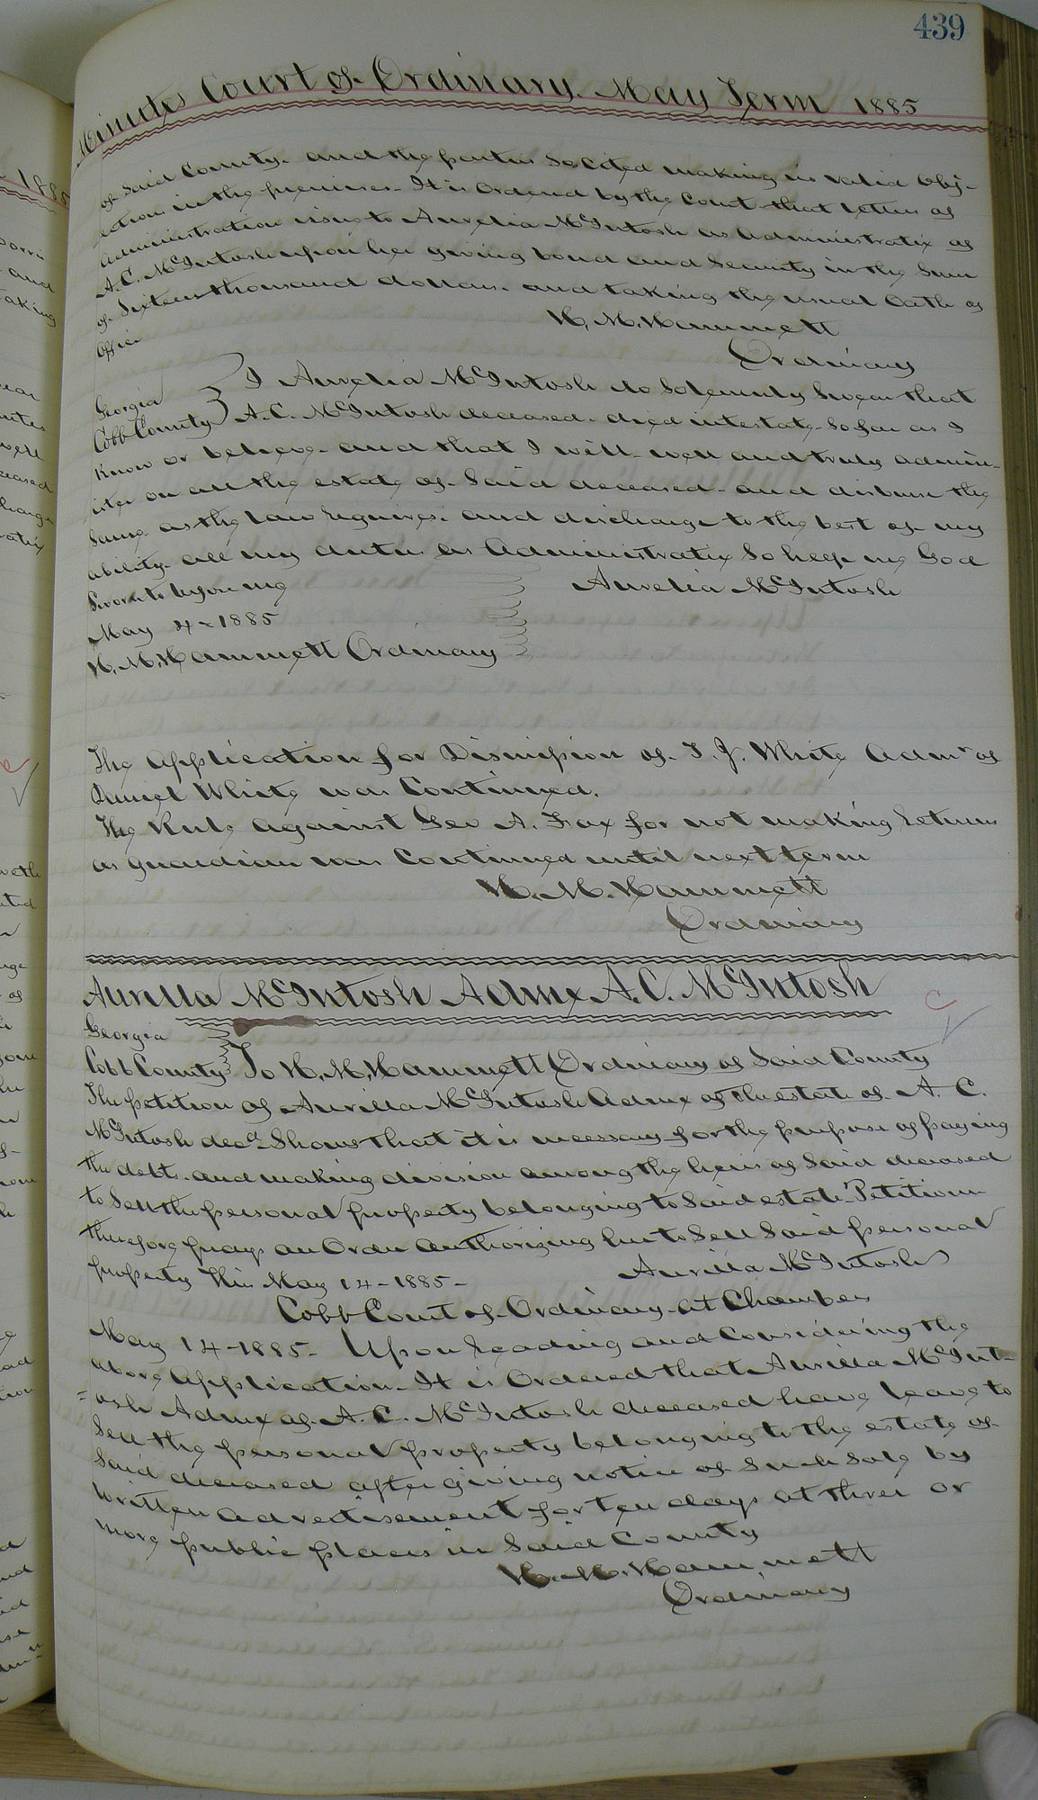 439
Minutes Court of Ordinary. May Term 1885
of said County. and the parties so cited making no valid obj-
ection in the premises. It is Ordered by the Court that letters of
administration issue to Aurelia McIntosh as administratrix of
A. C. McIntosh upon her giving bond and security in the Sum
of Sixteen thousand dollars. and taking the usual Oath of
office
H. M. Hammett
Ordinary
Georgia
Cobb County } I Aurelia McIntosh do Solemnly Swear that
A. C. McIntosh deceased. died intestate. So far as I
Know or believe. and that I will. well and truly admin-
ister on all the estate of Said deceased. and disburse the
Same as the law requires. and discharge to the best of my
ability. all my duties as Administratrix So help me God
Sworn to before me
Aurelia McIntosh
May 4-1885
H. M. Hammett Ordinary
The Application for Dismission of T. J. White Admr of
Daniel White was Continued.
The Rule against Geo A. Fox for not making returns
as guardian was Continued until next term
H. M. Hammett
Ordinary
Aurilla McIntosh Admx A. C. McIntosh
Georgia
Cobb County } To H. M. Hammett Ordinary of Said County
The petition of Aurilla McIntosh Admx of the estate of A. C.
McIntosh decd Shows that it is necessary for the purpose of paying
the debts. and making division among the heirs of Said deceased
to Sell the personal property belonging to Said estate. Petitioner
therefore prays an Order authorizing her to Sell Said personal
property This May 14-1885-
Aurilla McIntosh
Cobb Court of Ordinary at Chambers
May 14-1885- Upon reading and Considering the
above Application. It is Ordered that Aurilla McInt-
=osh Admx of A. C. McIntosh deceased have leave to
Sell the personal property belonging to the estate of
Said deceased after giving notice of Such Sale by
written advertisement for ten days at three or
more public places in Said County
H. M. Hammett
Ordinary